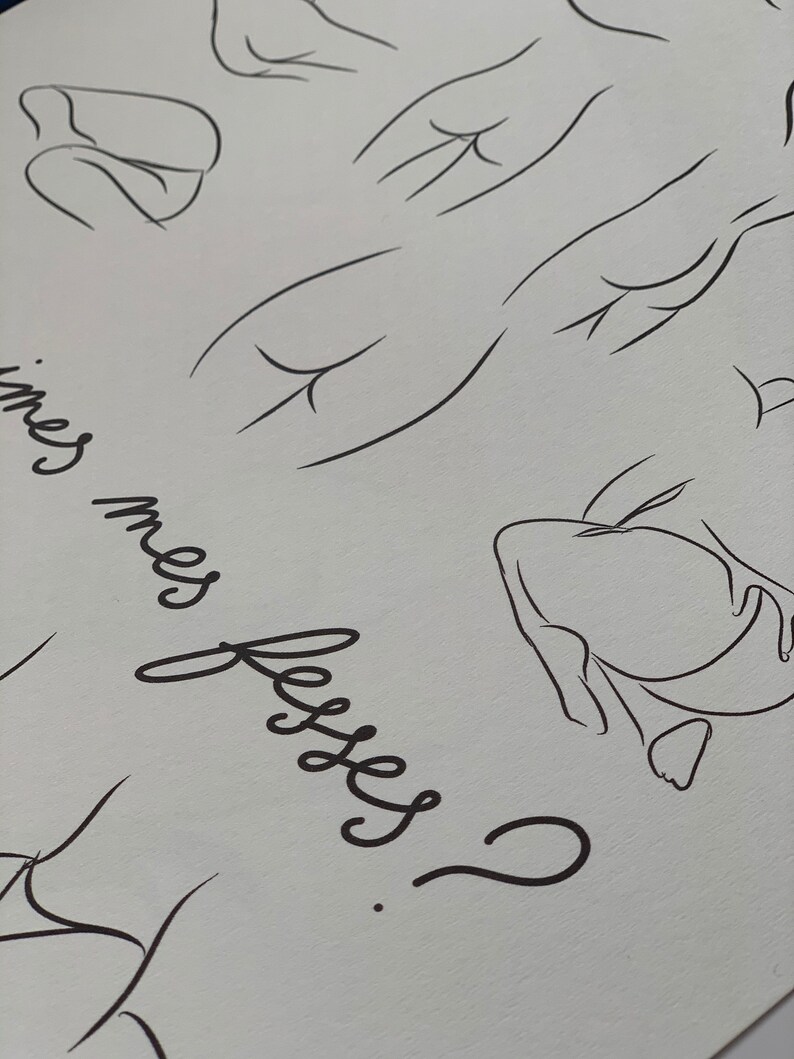 imes mes fesses ?